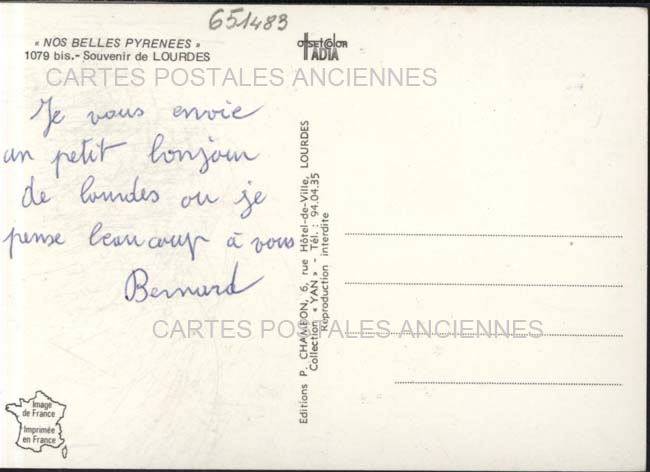 651483
« NOS BELLES PYRENEES »
1079 bis.- Souvenir de LOURDES
OFFSET COLOR
TADIA
CARTES POSTALES ANCIENNES
Je vous envoie
un petit bonjour
de lourdes ou je
pense beaucoup à vous
Bernard
Editions P. CHAMBON, 6, rue Hôtel-de-Ville, LOURDES
Collection « YAN » - Tél. : 94.04.35
Reproduction interdite
CARTES POSTALES ANCIENNES
Image
de France
Imprimée
en France